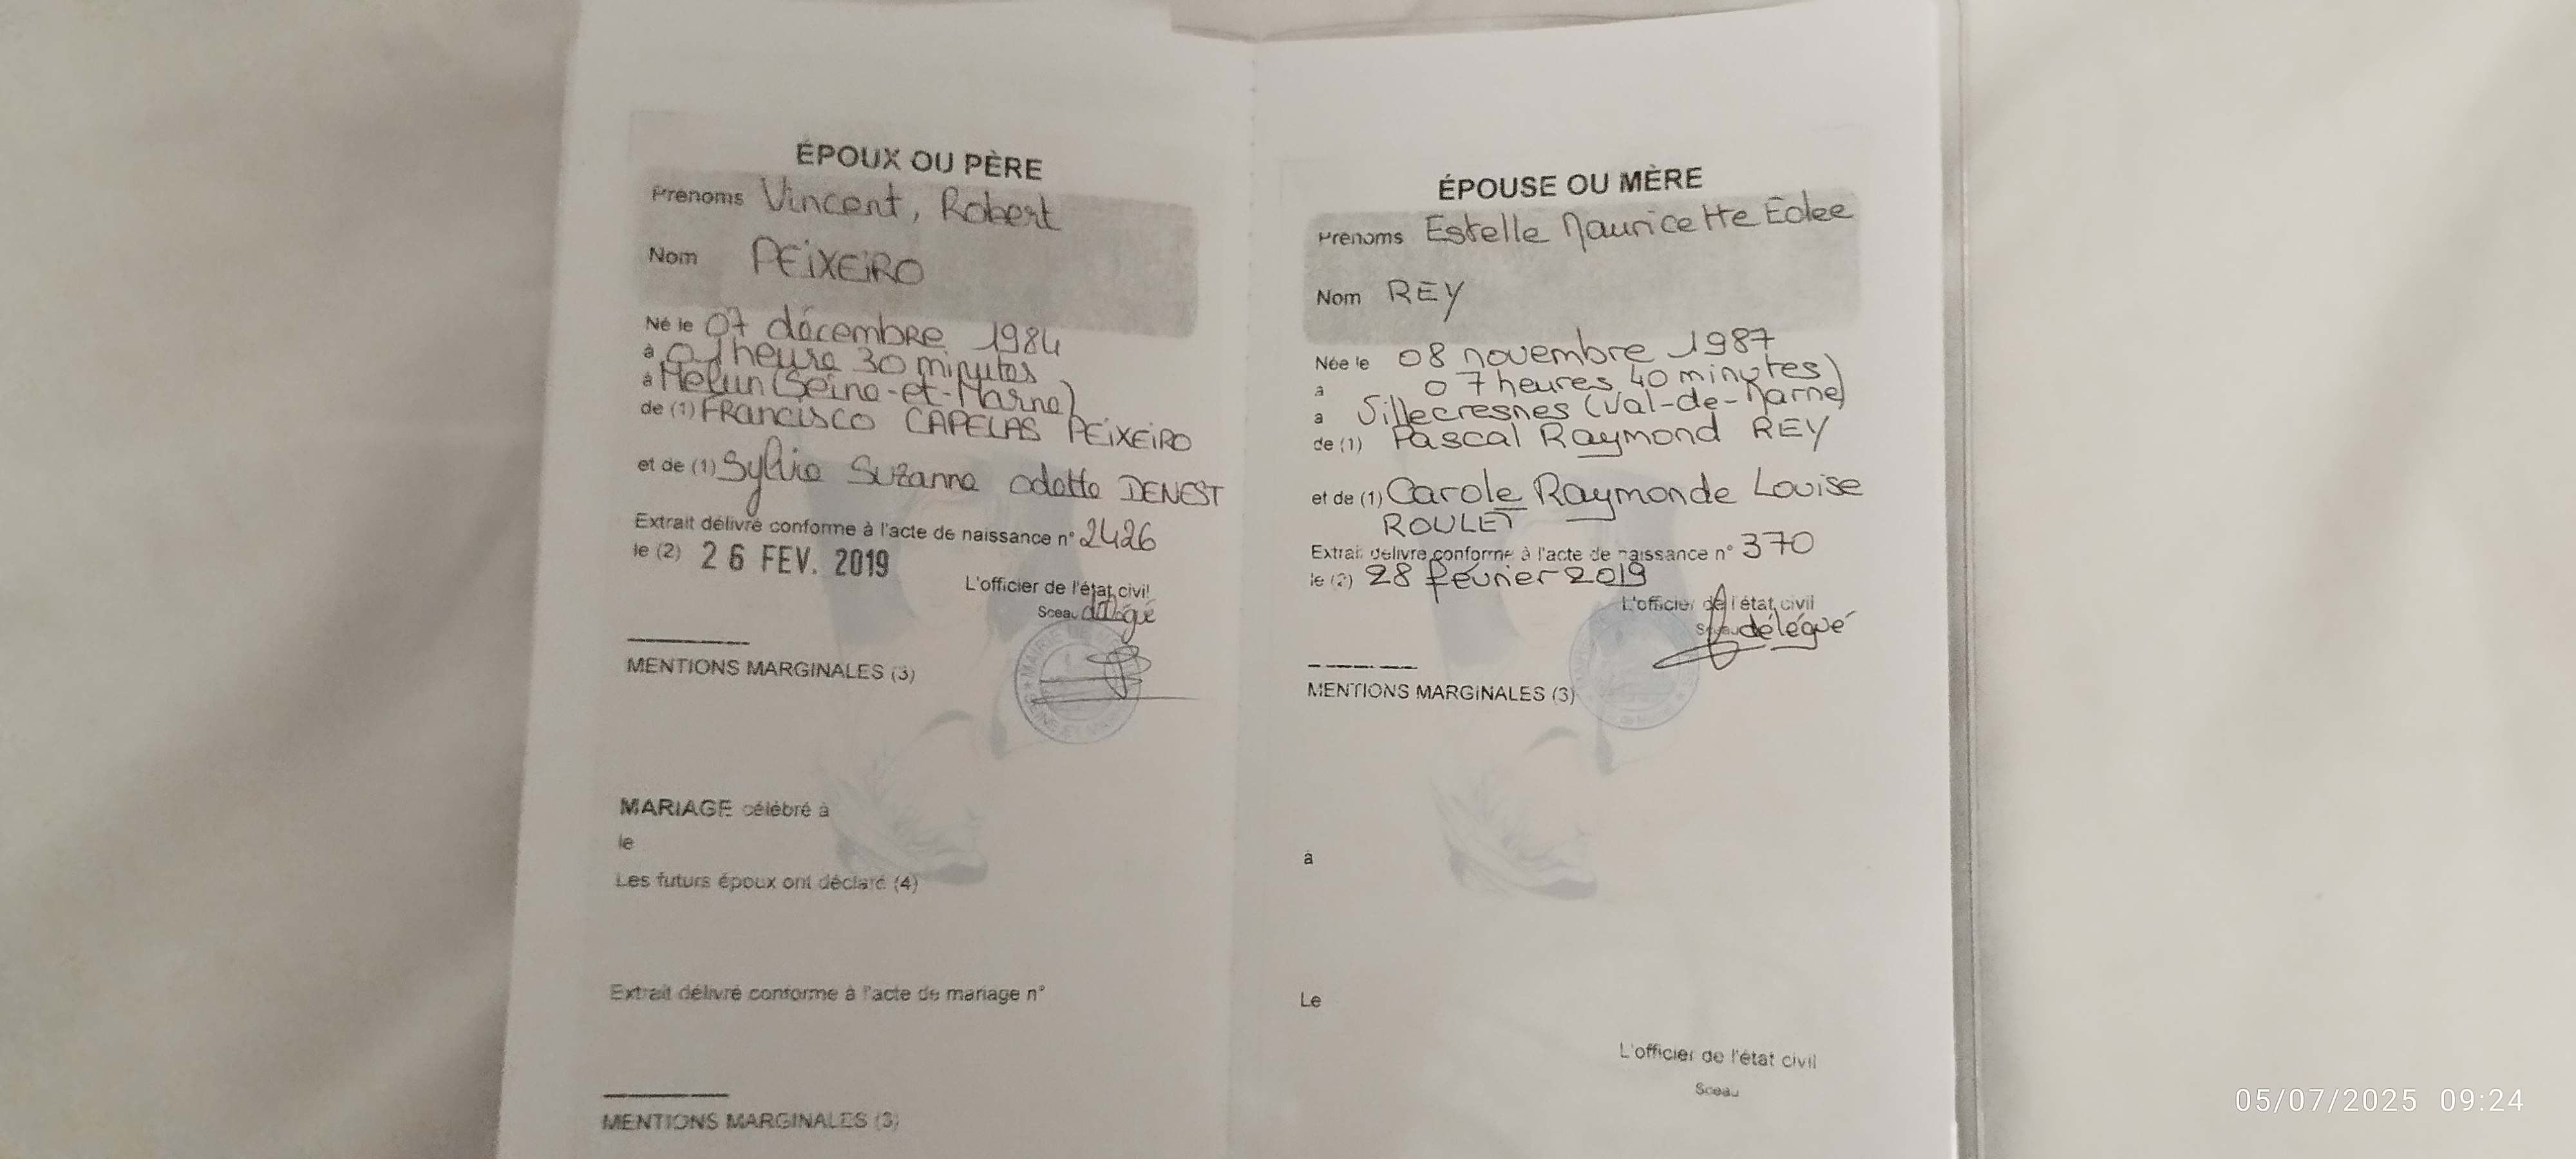 ÉPOUX OU PÈRE
Prénoms Vincent, Robert
Nom PEIXEIRO
Né le 07 décembre 1984
à 01 heure 30 minutes
à Melun (Seine-et-Marne)
de (1) Francisco CAPELAS PEIXEIRO
et de (1) Sylvie Suzanne Odette DENEST
Extrait délivré conforme à l'acte de naissance n° 2426
le (2) 26 FEV. 2019
L'officier de l'état civil
Sceau délégué
MENTIONS MARGINALES (3)
MARIAGE célébré à
le
Les futurs époux ont déclaré (4)
Extrait délivré conforme à l'acte de mariage n°
MENTIONS MARGINALES (3)
ÉPOUSE OU MÈRE
Prénoms Estelle Mauricette
Nom REY
Née le 08 novembre 1987
à 07 heures 40 minutes
à Villecresnes (Val-de-Marne)
de (1) Pascal Raymond REY
et de (1) Carole Raymonde Louise
ROULET
Extrait délivré conforme à l'acte de naissance n° 370
le (2) 28 février 2019
L'officier de l'état civil
Sceau délégué
MENTIONS MARGINALES (3)
à
Le
L'officier de l'état civil
Sceau
05/07/2025 09:24